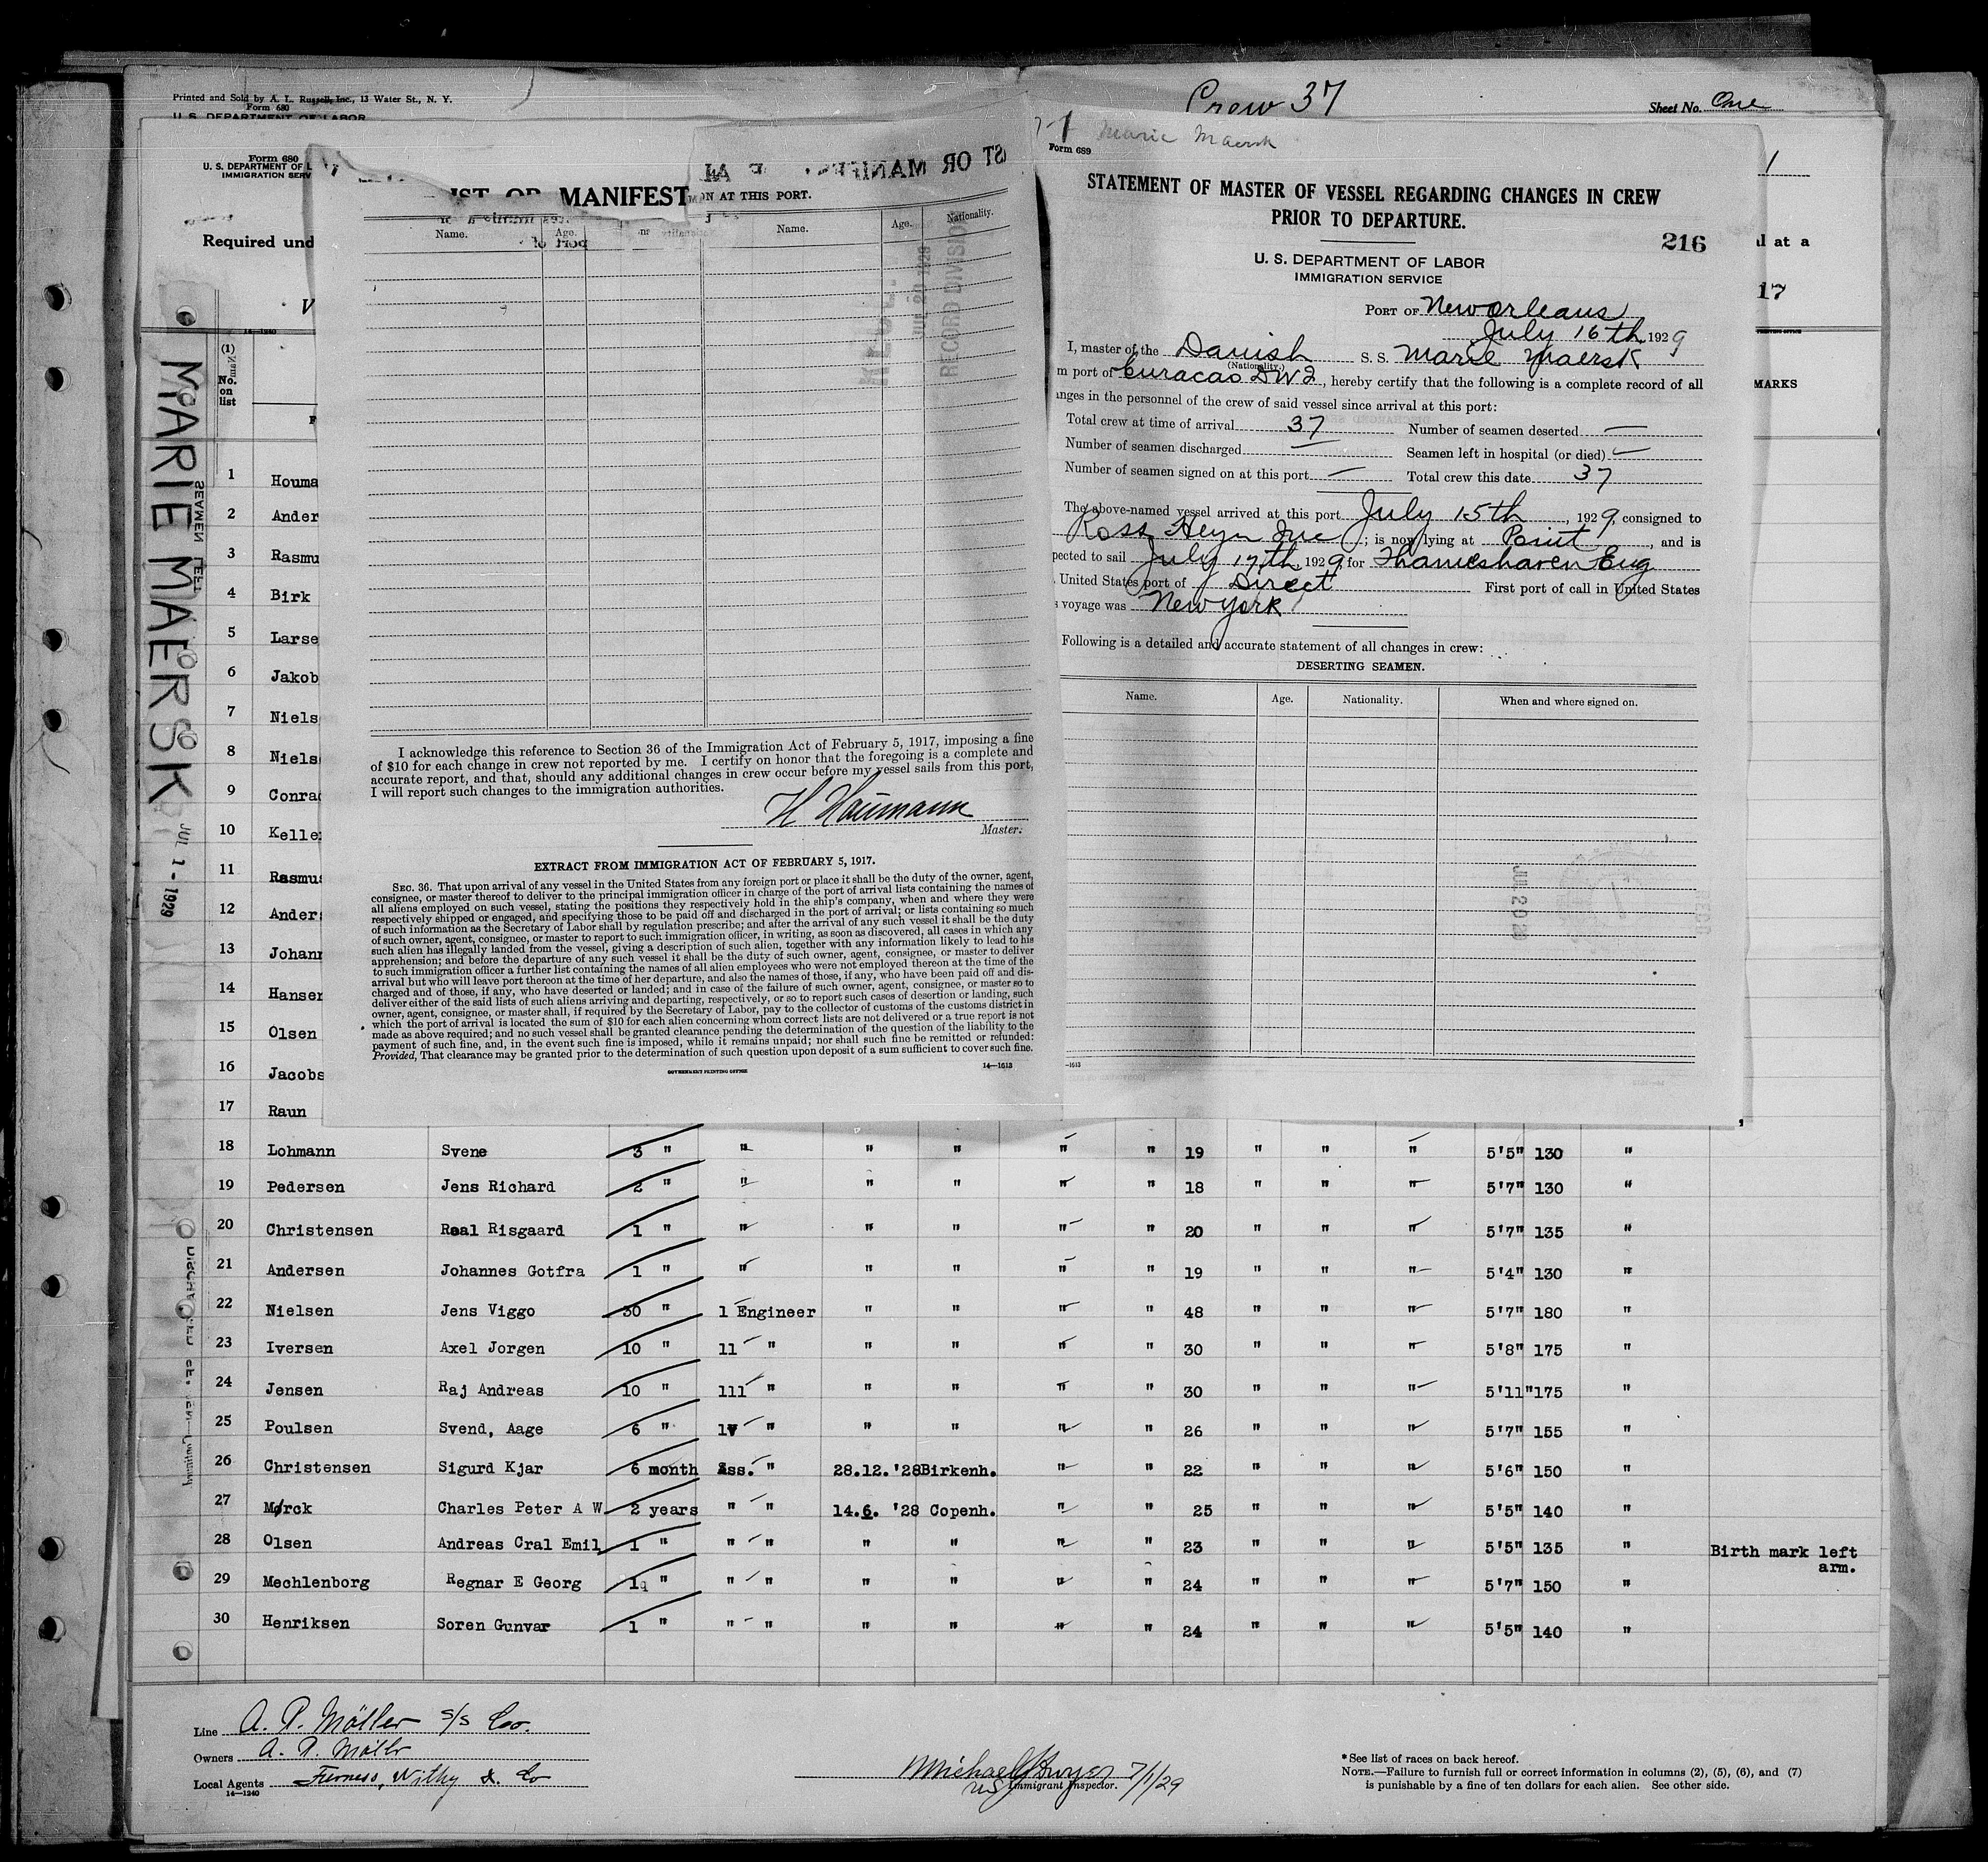 Printed and Sold by A. L. Russell, Inc., 13 Water St., N. Y.
Form 680
U. S. DEPARTMENT OF LABOR
Crew 37
Sheet No. One
Form 680
U. S. DEPARTMENT OF L
IMMIGRATION SERV
Required und
V
14-1240
(1)
No.
on
list
MARIE MAERSK
SEAMEN LEFT
JUL 1 - 1929
IST OR MANIFEST
ST OR MANIFEST
ON AT THIS PORT.
Name.
Age.
Name.
Age.
Nationality.
JUL 20 1929
RECORD DIVISION
I acknowledge this reference to Section 36 of the Immigration Act of February 5, 1917, imposing a fine
of $10 for each change in crew not reported by me. I certify on honor that the foregoing is a complete and
accurate report, and that, should any additional changes in crew occur before my vessel sails from this port,
I will report such changes to the immigration authorities.
H Haumann
Master.
EXTRACT FROM IMMIGRATION ACT OF FEBRUARY 5, 1917.
SEC. 36. That upon arrival of any vessel in the United States from any foreign port or place it shall be the duty of the owner, agent,
consignee, or master thereof to deliver to the principal immigration officer in charge of the port of arrival lists containing the names of
all aliens employed on such vessel, stating the positions they respectively hold in the ship's company, when and where they were
respectively shipped or engaged, and specifying those to be paid off and discharged in the port of arrival; or lists containing so much
of such information as the Secretary of Labor shall by regulation prescribe; and after the arrival of any such vessel it shall be the duty
of such owner, agent, consignee, or master to report to such immigration officer, in writing, as soon as discovered, all cases in which any
such alien has illegally landed from the vessel, giving a description of such alien, together with any information likely to lead to his
apprehension; and before the departure of any such vessel it shall be the duty of such owner, agent, consignee, or master to deliver
to such immigration officer a further list containing the names of all alien employees who were not employed thereon at the time of the
arrival but who will leave port thereon at the time of her departure, and also the names of those, if any, who have been paid off and dis-
charged and of those, if any, who have deserted or landed; and in case of the failure of such owner, agent, consignee, or master so to
deliver either of the said lists of such aliens arriving and departing, respectively, or so to report such cases of desertion or landing, such
owner, agent, consignee, or master shall, if required by the Secretary of Labor, pay to the collector of customs of the customs district in
which the port of arrival is located the sum of $10 for each alien concerning whom correct lists are not delivered or a true report is not
made as above required; and no such vessel shall be granted clearance pending the determination of the question of the liability to the
payment of such fine, and, in the event such fine is imposed, while it remains unpaid; nor shall such fine be remitted or refunded:
Provided, That clearance may be granted prior to the determination of such question upon deposit of a sum sufficient to cover such fine.
GOVERNMENT PRINTING OFFICE
14-1613
Marie Maersk
Form 689
STATEMENT OF MASTER OF VESSEL REGARDING CHANGES IN CREW
PRIOR TO DEPARTURE.
216
U. S. DEPARTMENT OF LABOR
IMMIGRATION SERVICE
PORT OF New Orleans
July 16th, 1929
I, master of the Danish S. S. Marie Maersk
(Nationality.)
m port of Curacao DWI, hereby certify that the following is a complete record of all
anges in the personnel of the crew of said vessel since arrival at this port:
Total crew at time of arrival 37 Number of seamen deserted —
Number of seamen discharged — Seamen left in hospital (or died) —
Number of seamen signed on at this port — Total crew this date 37
The above-named vessel arrived at this port July 15th, 1929, consigned to
Ross Heyn Inc; is now lying at Point, and is
pected to sail July 17th, 1929, for Thameshaven Eng
United States port of Direct First port of call in United States
s voyage was New York
Following is a detailed and accurate statement of all changes in crew:
DESERTING SEAMEN.
Name. Age. Nationality. When and where signed on.
JUL 20 29
-1613
l at a
17
MARKS
1 Houma
2 Ander
3 Rasmu
4 Birk
5 Larse
6 Jakob
7 Niels
8 Niels
9 Conrad
10 Keller
11 Rasmus
12 Anders
13 Johann
14 Hansen
15 Olsen
16 Jacobs
17 Raun
18 Lohmann Svene 3 " " " " " " 19 " " " 5'5" 130 "
19 Pedersen Jens Richard 2 " " " " " " 18 " " " 5'7" 130 "
20 Christensen Roal Risgaard 1 " " " " " " 20 " " " 5'7" 135 "
21 Andersen Johannes Gotfra 1 " " " " " " 19 " " " 5'4" 130 "
22 Nielsen Jens Viggo 30 " 1 Engineer " " " " 48 " " " 5'7" 180 "
23 Iversen Axel Jorgen 10 " 11 " " " " " 30 " " " 5'8" 175 "
24 Jensen Raj Andreas 10 " 111 " " " " " 30 " " " 5'11" 175 "
25 Poulsen Svend, Aage 6 " 1V " " " " " 26 " " " 5'7" 155 "
26 Christensen Sigurd Kjar 6 month Ass. " 28.12.'28 Birkenh. " " 22 " " " 5'6" 150 "
27 Mørck Charles Peter A W 2 years " " 14.6. '28 Copenh. " " 25 " " " 5'5" 140 "
28 Olsen Andreas Cral Emil 1 " " " " " " " 23 " " " 5'5" 135 " Birth mark left
arm.
29 Mechlenborg Regnar E Georg 1 " " " " " " " 24 " " " 5'7" 150 "
30 Henriksen Soren Gunvar 1 " " " " " " " 24 " " " 5'5" 140 "
Line A. P. Möller S/S Co.
Owners A. P. Möller
Local Agents Furness, Withy & Co
14-1240
Michael J Dwyer 7/1/29
US Immigrant Inspector.
*See list of races on back hereof.
NOTE.—Failure to furnish full or correct information in columns (2), (5), (6), and (7)
is punishable by a fine of ten dollars for each alien. See other side.